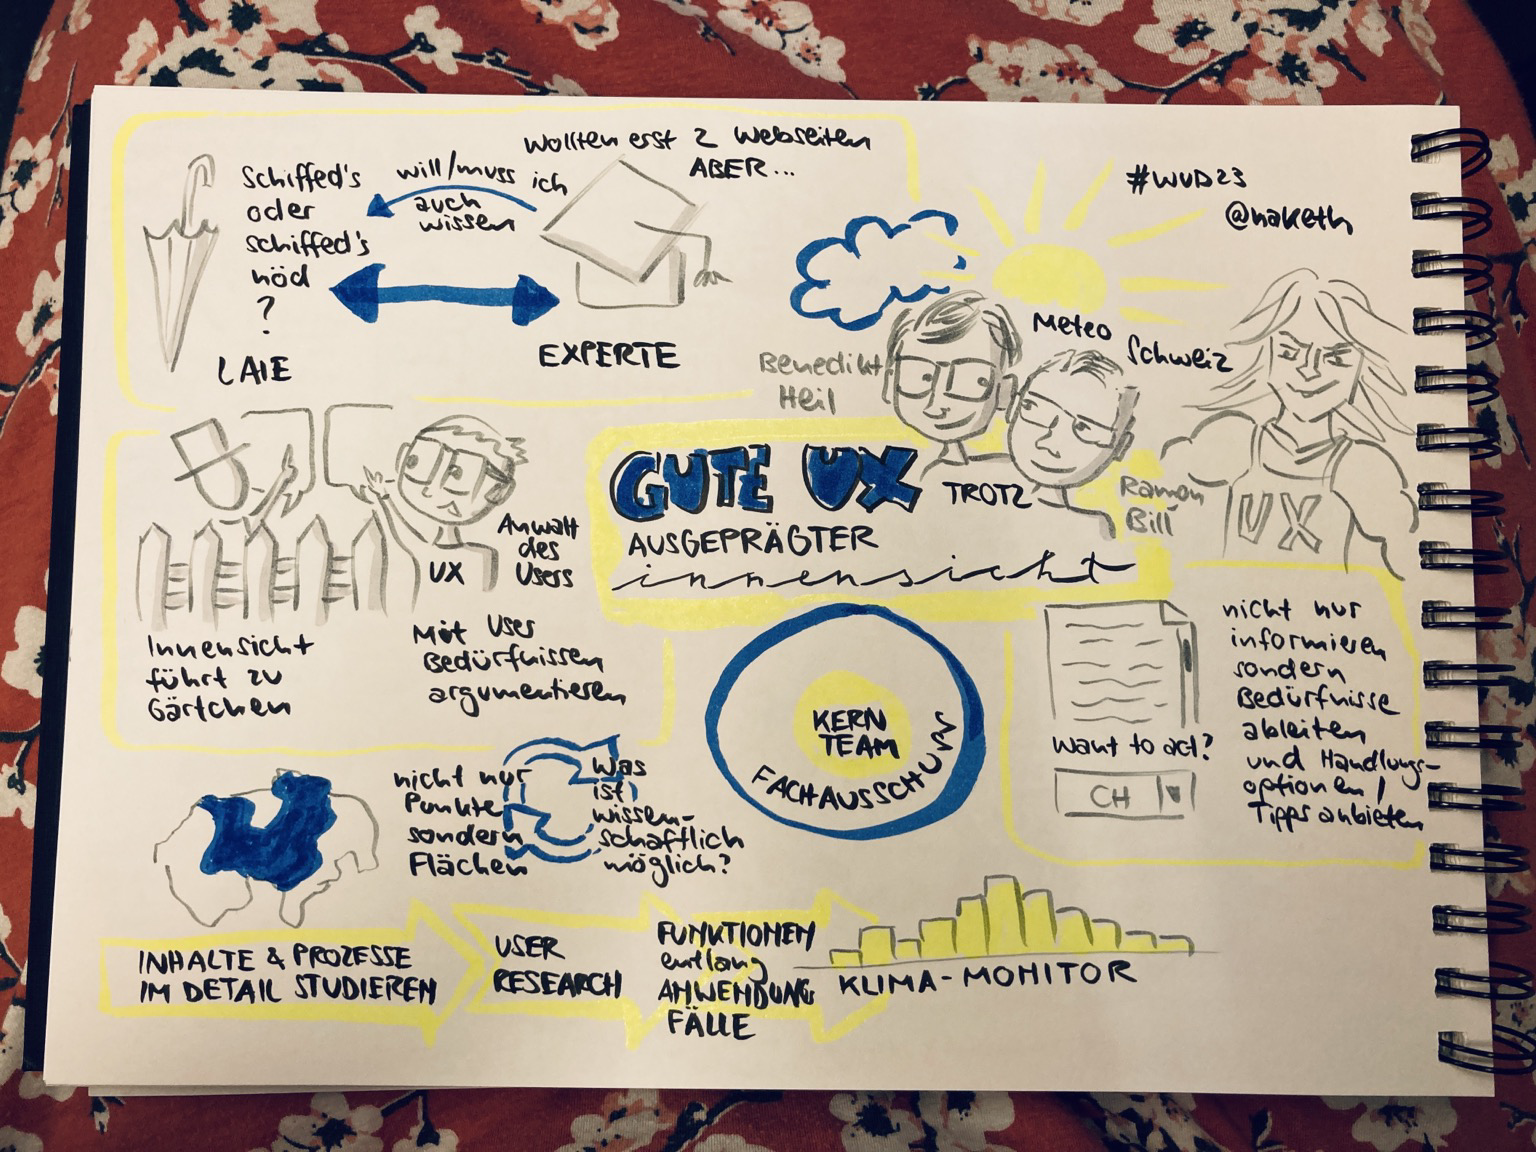 Wollten erst 2 Webseiten
ABER...
Schiffed's
oder
schiffed's
nöd
?
LAIE
will/muss ich
auch
wissen
EXPERTE
#WUD23
@naketh
Meteo Schweiz
Benedikt
Heil
Ramon
Bill
UX
GUTE UX TROTZ
AUSGEPRÄGTER
innensicht
UX
Anwalt
des
Users
Innensicht
führt zu
Gärtchen
Mit User
Bedürfnissen
argumentieren
KERN
TEAM
FACHAUSSCHUSS
want to act?
CH
nicht nur
informieren
sondern
Bedürfnisse
ableiten
und Handlungs-
optionen /
Tipps anbieten
nicht nur
Punkte
sondern
Flächen
Was
ist
wissen-
schaftlich
möglich?
INHALTE & PROZESSE
IM DETAIL STUDIEREN
USER
RESEARCH
FUNKTIONEN
entlang
ANWENDUNG
FÄLLE
KLIMA-MONITOR